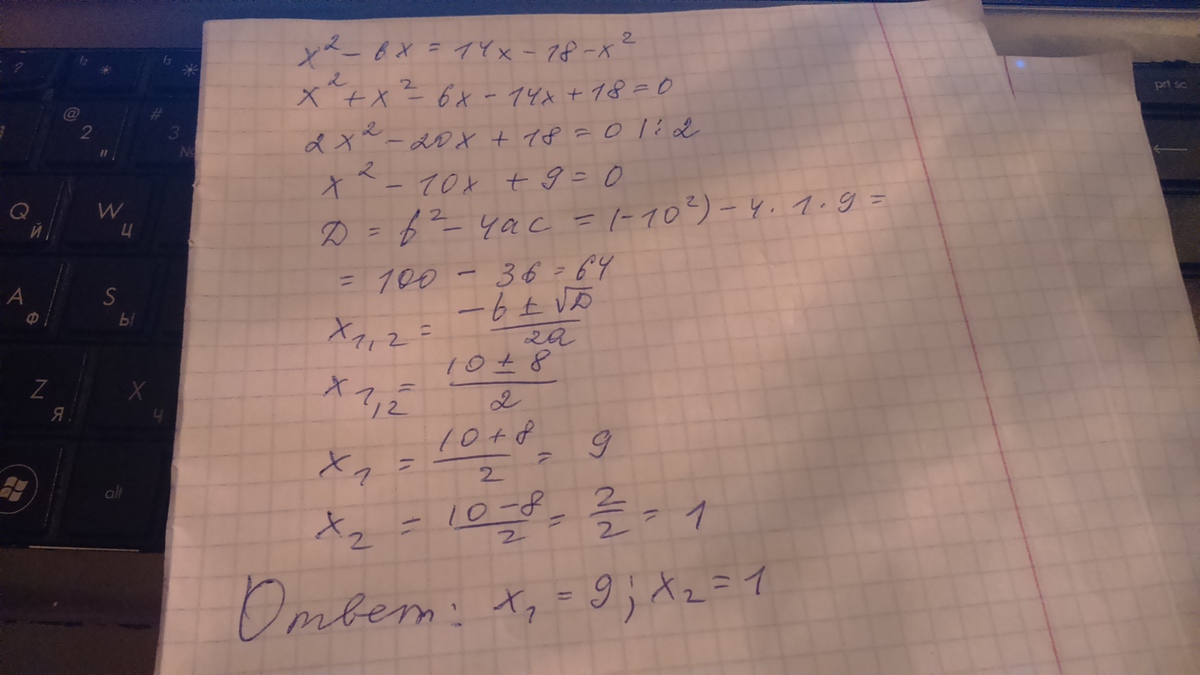 x² - 6x = 14x - 18 - x²
x² + x² - 6x - 14x + 18 = 0
2x² - 20x + 18 = 0 | : 2
x² - 10x + 9 = 0
D = b² - 4ac = (-10²) - 4 · 1 · 9 =
= 100 - 36 = 64
x₁,₂ = (-b ± √D)/2a
x₁,₂ = (10 ± 8)/2
x₁ = (10 + 8)/2 = 9
x₂ = (10 - 8)/2 = 2/2 = 1
Ответ: x₁ = 9; x₂ = 1
@ 2 "
# 3 №
Q Й
W Ц
A Ф
S Ы
Z Я
X Ч
alt
prt sc